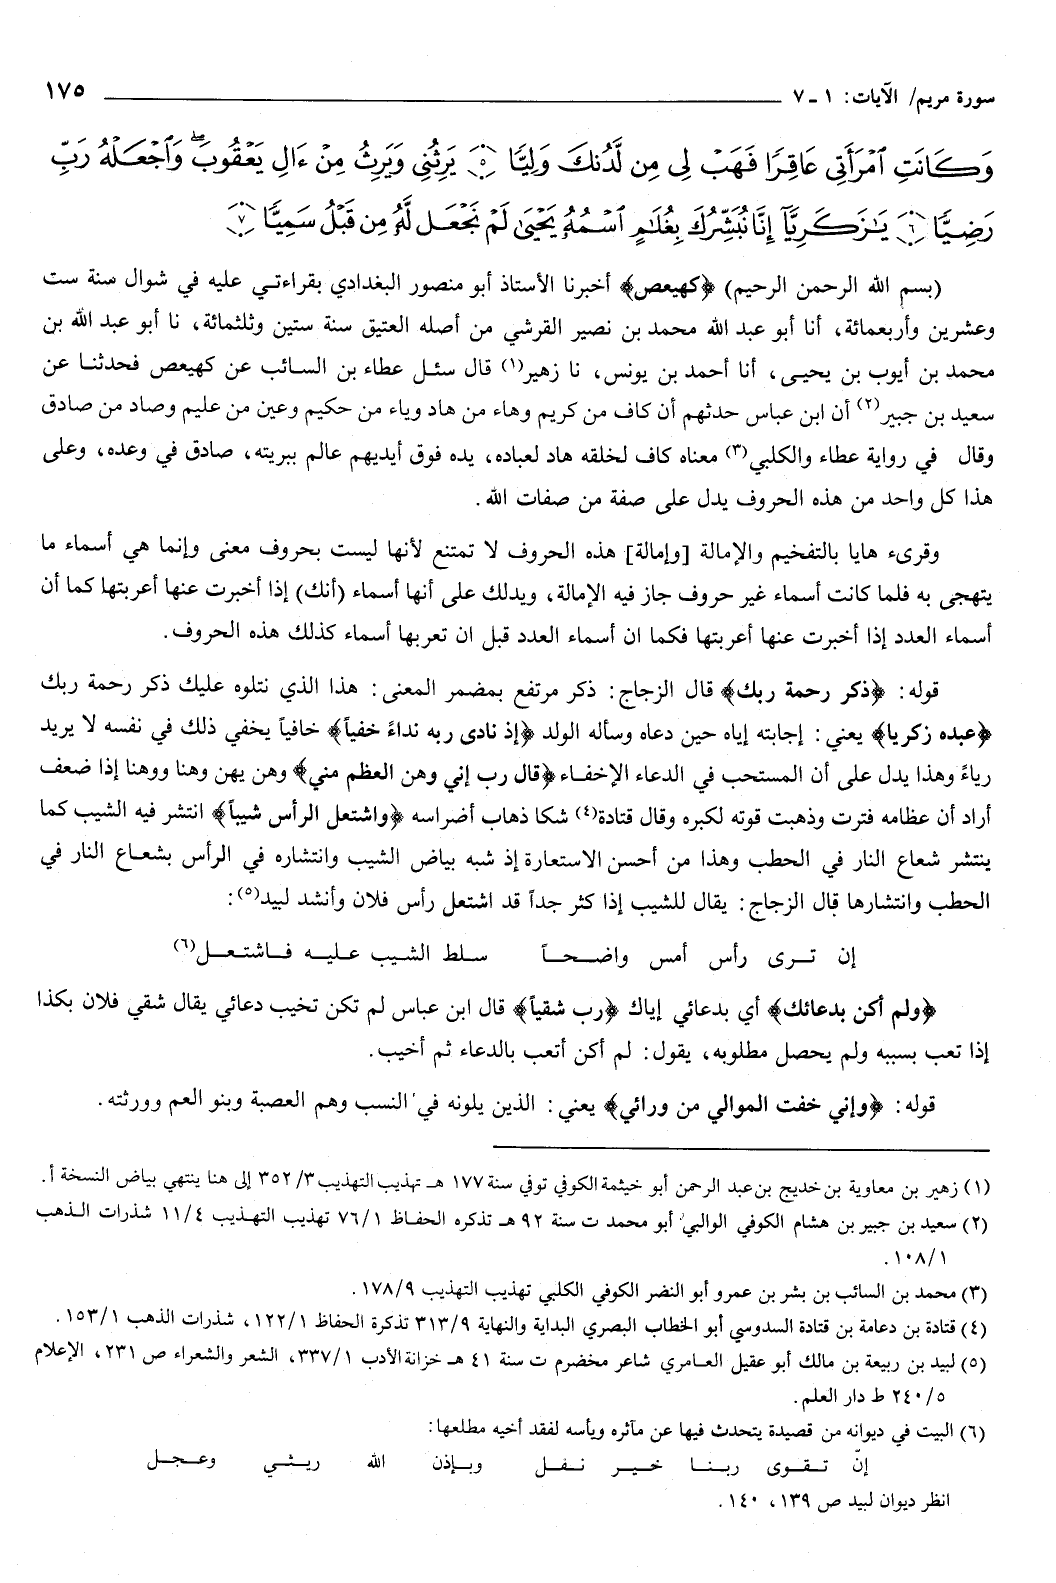 سورة مريم/ الآيات: ١ ـ ٧ ١٧٥
وَكَانَتِ ٱمْرَأَتِى عَاقِرًا فَهَبْ لِى مِن لَّدُنكَ وَلِيًّا ۝٥ يَرِثُنِى وَيَرِثُ مِنْ ءَالِ يَعْقُوبَ ۖ وَٱجْعَلْهُ رَبِّ
رَضِيًّا ۝٦ يَـٰزَكَرِيَّآ إِنَّا نُبَشِّرُكَ بِغُلَـٰمٍ ٱسْمُهُۥ يَحْيَىٰ لَمْ نَجْعَل لَّهُۥ مِن قَبْلُ سَمِيًّا ۝٧
(بسم الله الرحمن الرحيم) ﴿كهيعص﴾ أخبرنا الأستاذ أبو منصور البغدادي بقراءتي عليه في شوال سنة ست
وعشرين وأربعمائة، أنا أبو عبد الله محمد بن نصير القرشي من أصله العتيق سنة ستين وثلثمائة، نا أبو عبد الله بن
محمد بن أيوب بن يحيى، أنا أحمد بن يونس، نا زهير(١) قال سئل عطاء بن السائب عن كهيعص فحدثنا عن
سعيد بن جبير(٢) أن ابن عباس حدثهم أن كاف من كريم وهاء من هاد وياء من حكيم وعين من عليم وصاد من صادق
وقال في رواية عطاء والكلبي(٣) معناه كاف لخلقه هاد لعباده، يده فوق أيديهم عالم ببريته، صادق في وعده، وعلى
هذا كل واحد من هذه الحروف يدل على صفة من صفات الله.
وقرىء هايا بالتفخيم والإمالة [وإمالة] هذه الحروف لا تمتنع لأنها ليست بحروف معنى وإنما هي أسماء ما
يتهجى به فلما كانت أسماء غير حروف جاز فيه الإمالة، ويدلك على أنها أسماء (أنك) إذا أخبرت عنها أعربتها كما أن
أسماء العدد إذا أخبرت عنها أعربتها فكما ان أسماء العدد قبل ان تعربها أسماء كذلك هذه الحروف.
قوله: ﴿ذكر رحمة ربك﴾ قال الزجاج: ذكر مرتفع بمضمر المعنى: هذا الذي نتلوه عليك ذكر رحمة ربك
﴿عبده زكريا﴾ يعني: إجابته إياه حين دعاه وسأله الولد ﴿إذ نادى ربه نداءً خفياً﴾ خافياً يخفي ذلك في نفسه لا يريد
رياءً وهذا يدل على أن المستحب في الدعاء الإخفاء ﴿قال رب إني وهن العظم مني﴾ وهن يهن وهنا ووهنا إذا ضعف
أراد أن عظامه فترت وذهبت قوته لكبره وقال قتادة(٤) شكا ذهاب أضراسه ﴿واشتعل الرأس شيباً﴾ انتشر فيه الشيب كما
ينتشر شعاع النار في الحطب وهذا من أحسن الاستعارة إذ شبه بياض الشيب وانتشاره في الرأس بشعاع النار في
الحطب وانتشارها قال الزجاج: يقال للشيب إذا كثر جداً قد اشتعل رأس فلان وأنشد لبيد(٥):
إن ترى رأس أمس واضحاً سلط الشيب عليه فاشتعل(٦)
﴿ولم أكن بدعائك﴾ أي بدعائي إياك ﴿رب شقياً﴾ قال ابن عباس لم تكن تخيب دعائي يقال شقي فلان بكذا
إذا تعب بسببه ولم يحصل مطلوبه، يقول: لم أكن أتعب بالدعاء ثم أخيب.
قوله: ﴿وإني خفت الموالي من ورائي﴾ يعني: الذين يلونه في النسب وهم العصبة وبنو العم وورثته.
(١) زهير بن معاوية بن خديج بن عبد الرحمن أبو خيثمة الكوفي توفي سنة ١٧٧ هـ تهذيب التهذيب ٣/ ٣٥٢ إلى هنا ينتهي بياض النسخة أ.
(٢) سعيد بن جبير بن هشام الكوفي الوالبي أبو محمد ت سنة ٩٢ هـ تذكره الحفاظ ١/ ٧٦ تهذيب التهذيب ٤/ ١١ شذرات الذهب
١/ ١٠٨.
(٣) محمد بن السائب بن بشر بن عمرو أبو النضر الكوفي الكلبي تهذيب التهذيب ٩/ ١٧٨.
(٤) قتادة بن دعامة بن قتادة السدوسي أبو الخطاب البصري البداية والنهاية ٩/ ٣١٣ تذكرة الحفاظ ١/ ١٢٢، شذرات الذهب ١/ ١٥٣.
(٥) لبيد بن ربيعة بن مالك أبو عقيل العامري شاعر مخضرم ت سنة ٤١ هـ خزانة الأدب ١/ ٣٣٧، الشعر والشعراء ص ٢٣١، الإعلام
٥/ ٢٤٠ ط دار العلم.
(٦) البيت في ديوانه من قصيدة يتحدث فيها عن مآثره ويأسه لفقد أخيه مطلعها:
إنّ تقوى ربنا خير نفل وبإذن الله ريثي وعجل
انظر ديوان لبيد ص ١٣٩، ١٤٠.